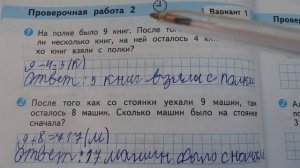 Проверочная работа 2
1 Вариант 1
1 На полке было 9 книг. После того
ли несколько книг, на ней осталось 4 кни
ко книг взяли с полки?
9-4=5 (к)
Ответ: 5 книг взяли с полки
2 После того как со стоянки уехали 9 машин, там
осталось 8 машин. Сколько машин было на стоянке
сначала?
9+8=17 (м)
Ответ: 17 машин было снача